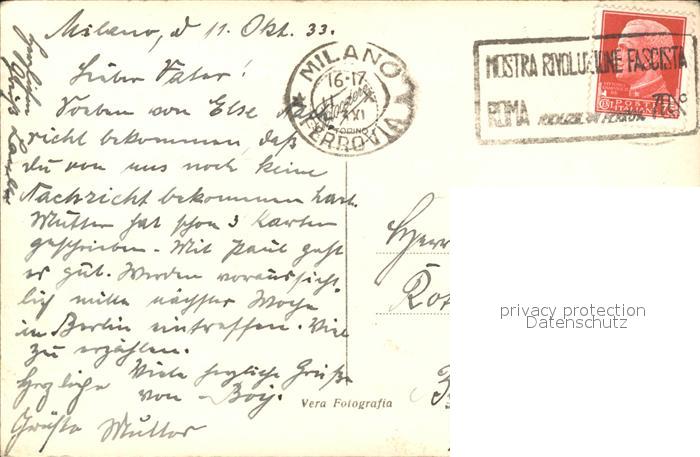 Milano, d 11. Okt. 33.
Lieber Vater!
Soeben von Else Nach
richt bekommen, daß
du von uns noch keine
Nachricht bekommen hast.
Mutter hat schon 3 Karten
geschrieben. Mit Paul geht
es gut. Werden voraussicht
lich mitte nächster Woche
in Berlin eintreffen. Viel
zu erzählen.
Viele herzliche Grüße
von
Herzliche
Grüße Mutter
MILANO
16-17
XI
FERROVIA
MOSTRA RIVOLUZIONE FASCISTA
ROMA
POSTE
Herr
privacy protection
Datenschutz
Vera Fotografia